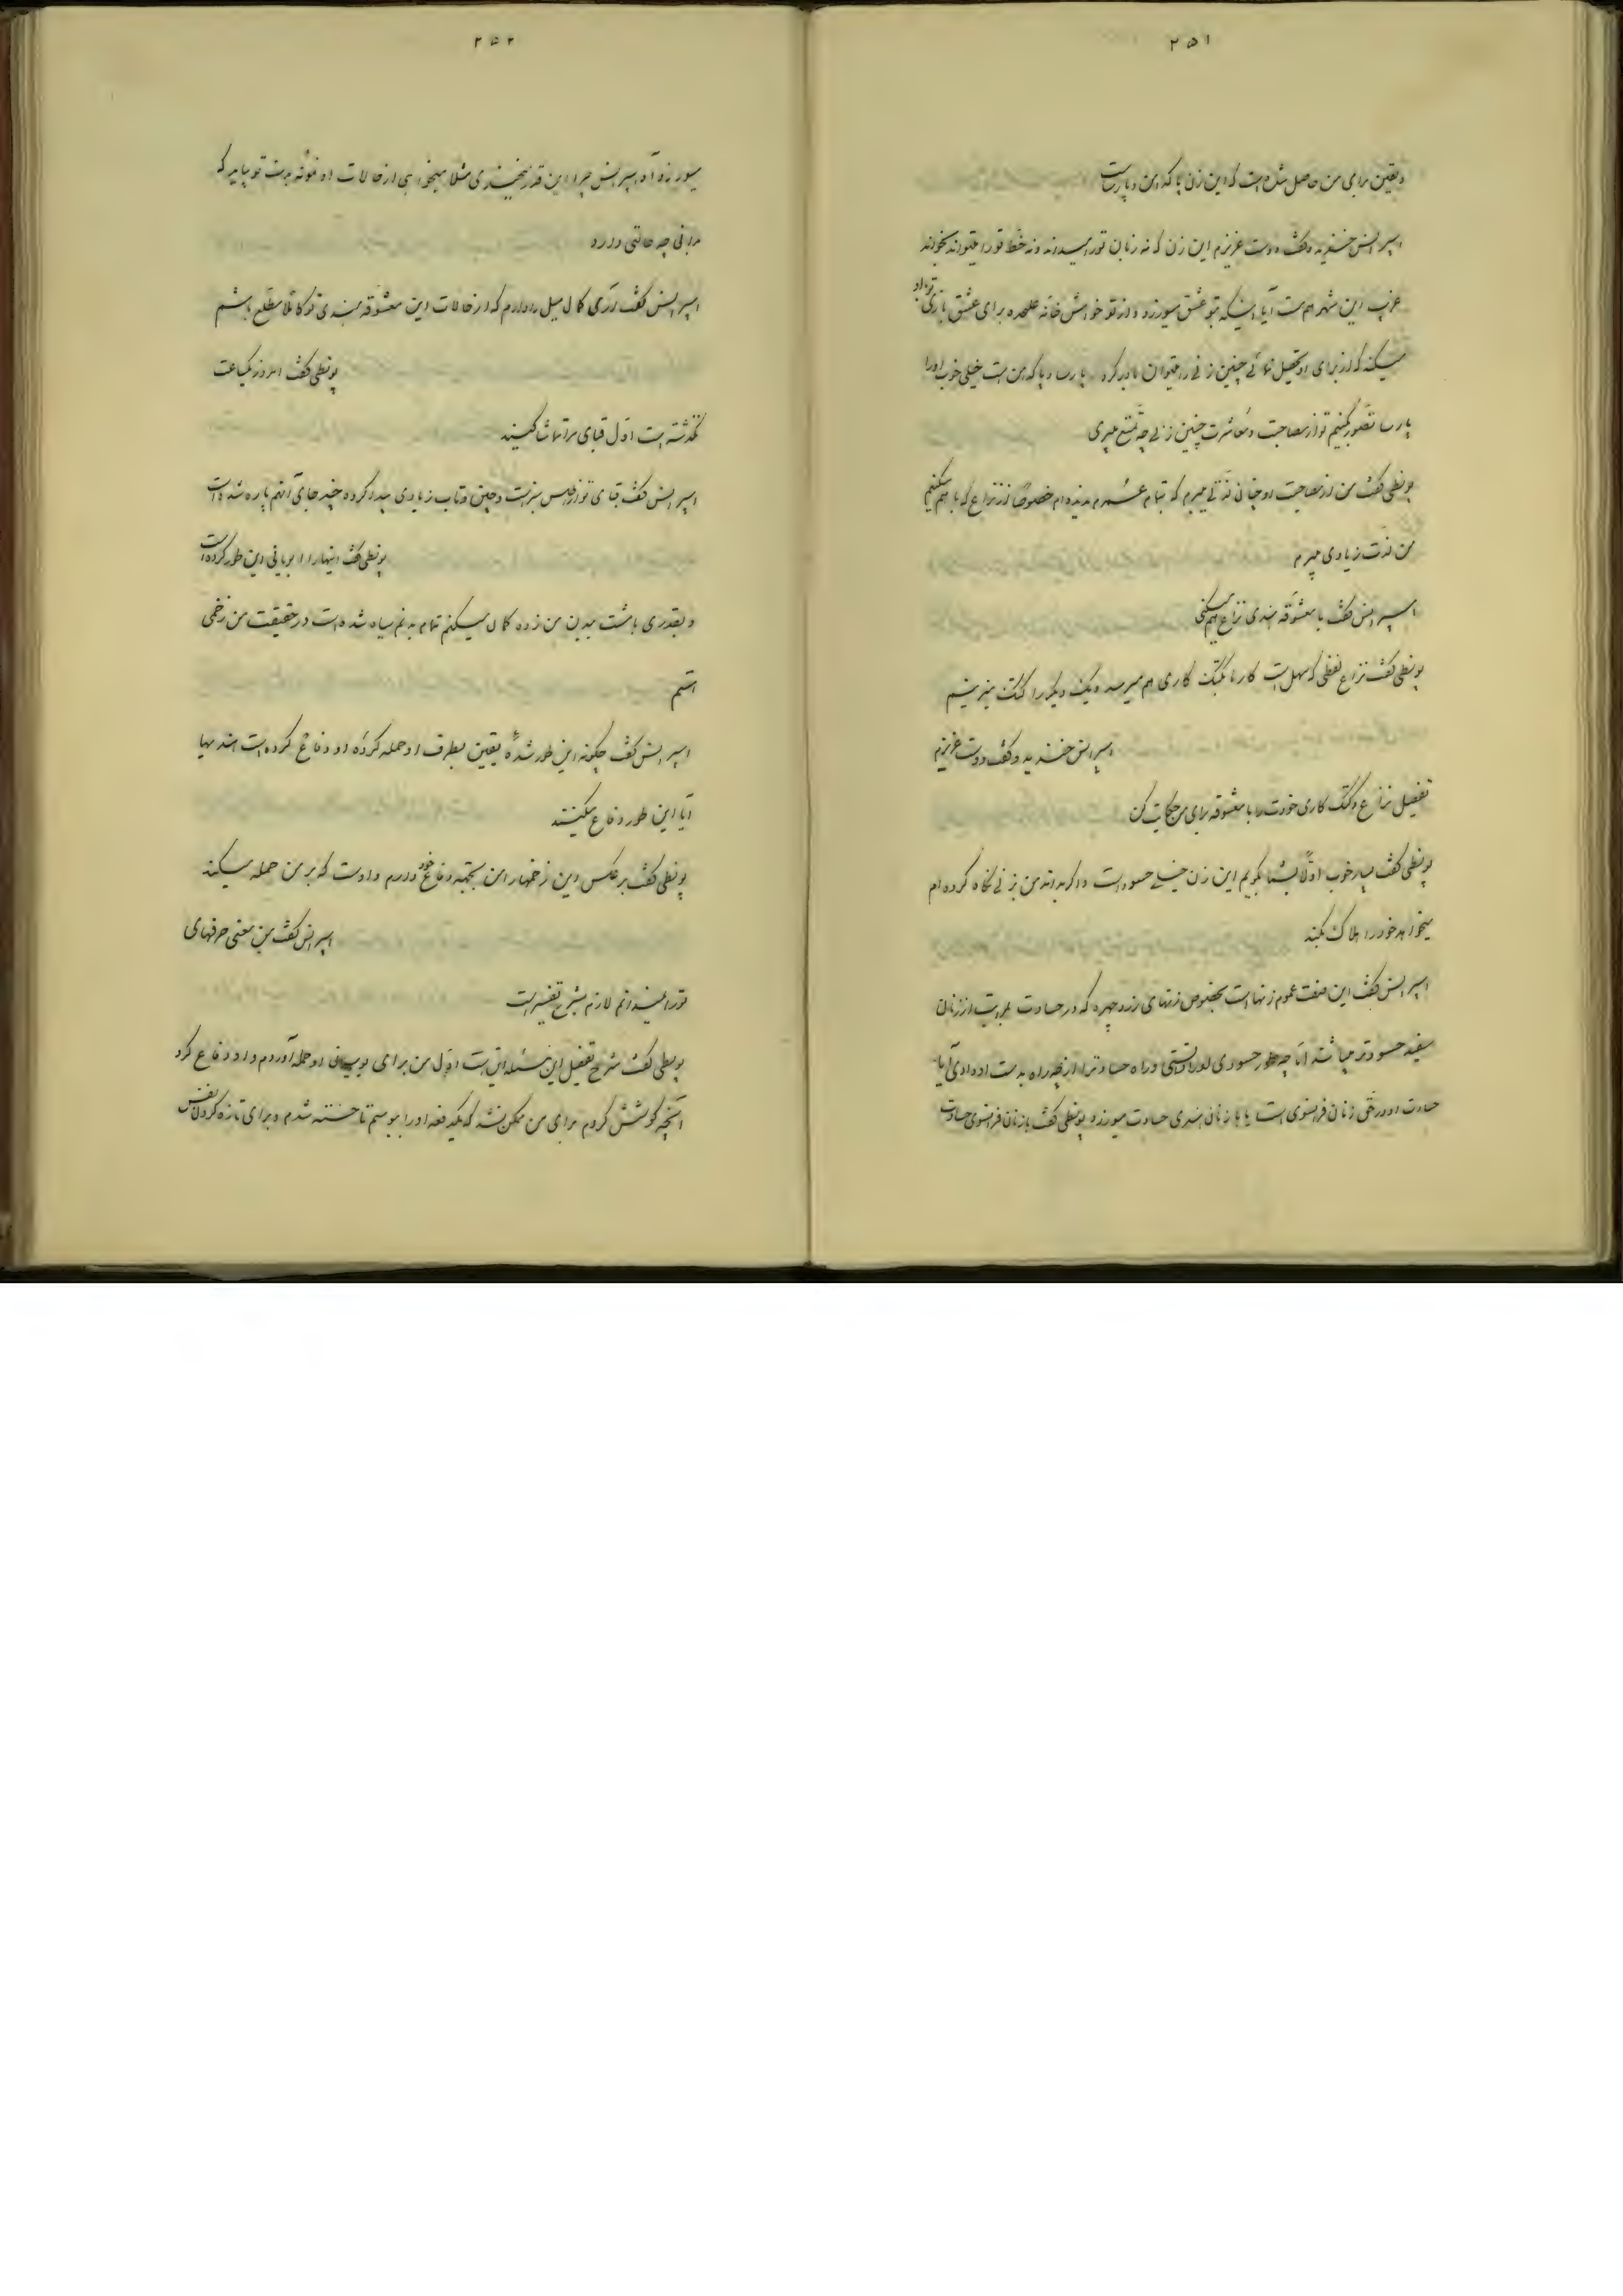 ۲۵۱
و یقین برای من حاصل شده است که این زن پاکدامن و پارساست
اسپرانس خندید و گفت دوست عزیزم این زن که نه زبان تو را میداند و نه خط تو را میتواند بخواند
غریب این شهر هم است آیا اینکه بتو عشق میورزد و از تو خواهش خانه علیحده برای عشق بازی
میکند که از برای او تحصیل نمائی چنین زنی را میتوان باور کرد پارسا و پاکدامن است خیلی خوب او را
پارسا تصور کنیم تو از مصاحبت و معاشرت چنین زنی چه تمتع میبری
پونطی گفت من از مصاحبت او چنان لذتی میبرم که تمام عمرم ندیده ام خصوصا از نزاع که با هم میکنیم
من لذت زیادی میبرم
اسپرانس گفت با معشوقه هندی نزاع هم میکنی
پونطی گفت نزاع لفظی که سهل است کار ما بکتک کاری هم میرسد و یک دیگر را کتک میزنیم
اسپرانس خندید و گفت دوست عزیزم
تفصیل نزاع و کتک کاری خودت را با معشوقه برای من حکایت کن
پونطی گفت بسیار خوب اولا بشما بگویم این زن خیلی حسود است و اگر بداند من بزنی نگاه کرده ام
میخواهد خود را هلاک بکند
اسپرانس گفت این صفت عموم زنها است بخصوص زنهای زرد چهره که در حسادت از زنان
سفید حسودتر میباشند اما چه طور حسودی او را دانستی و راه حسادت را از چه راه بدست او دادی آیا
حسادت او در حق زنان فرانسوی است یا با زنان هندی حسادت میورزد پونطی گفت با زنان فرانسوی حسادت
۲۵۲
میورزد آه اسپرانس چرا این قدر میخندی مثلا میخواهی از حالات او نمونه بدست تو بیاید که
بدانی چه حالتی دارد
اسپرانس گفت آری کمال میل را دارم که از حالات این معشوقه هندی تو کاملا مطلع باشم
پونطی گفت امروز یکساعت
گذشته است اول قبای مرا تماشا کنید
اسپرانس گفت قبای تو از اطلس سبز است و چین و تاب زیادی پیدا کرده چند جای آنهم پاره شده است
پونطی گفت اینها را این طور کرده است
و بقدری با مشت ببدن من زده گمان میکنم تمام بدنم سیاه شده است در حقیقت من زخمی
هستم
اسپرانس گفت چگونه این طور شده یقین بطرف او حمله کرده او دفاع کرده است هندیها
آیا این طور دفاع میکنند
پونطی گفت بر عکس این زخمها را من بجهة دفاع خود دارم و اوست که بر من حمله میکند
اسپرانس گفت من معنی حرفهای
تو را نمیدانم لازم بشرح تفسیر است
پونطی گفت شرح تفصیل این مسئله این است اول من برای بوسیدن او حمله آوردم و او دفاع کرد
آنچه کوشش کردم برای من ممکن نشد که یکدفعه او را ببوسم تا خسته شدم و برای تازه کردن نفس